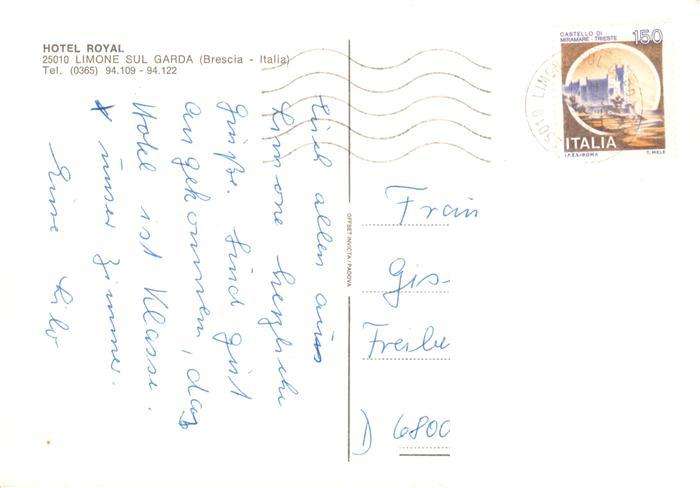 HOTEL ROYAL
25010 LIMONE SUL GARDA (Brescia - Italia)
Tel. (0365) 94.109 - 94.122
Euch allen aus
Limone herzliche
Grüße. Sind gut
angekommen, das
Hotel ist Klasse.
x unser Zimmer.
Eure Lilo
OFFSET INVICTA / PADOVA
CASTELLO DI
MIRAMARE - TRIESTE
150
ITALIA
I.P.Z.S.-ROMA
T. MELE
25010 LIMON
Gis
Freibu
D 6800